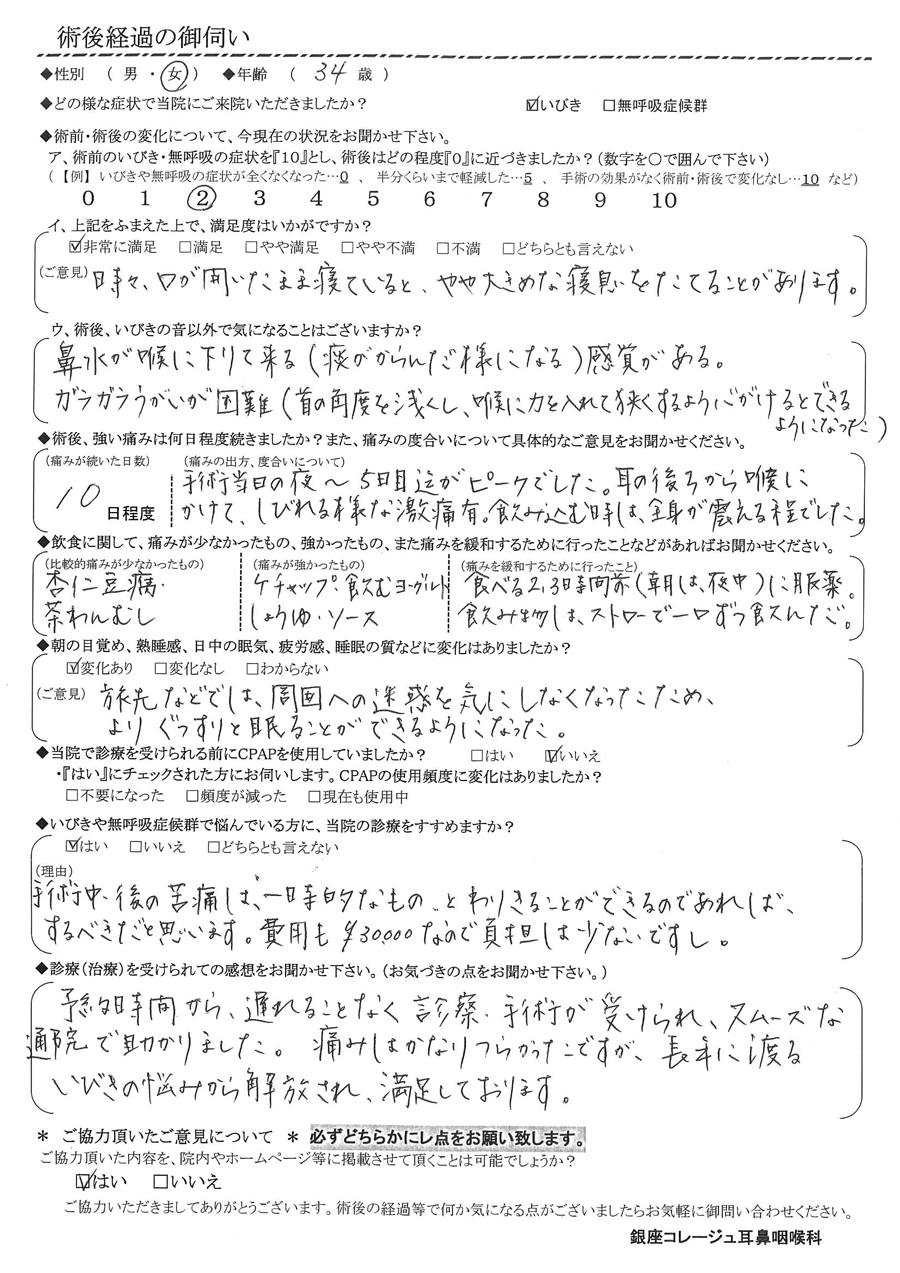 術後経過の御伺い
◆性別 ( 男 ・ 女 ) ◆年齢 ( 34 歳 )
◆どの様な症状で当院にご来院いただきましたか? ☑いびき □無呼吸症候群
◆術前・術後の変化について、今現在の状況をお聞かせ下さい。
ア、術前のいびき・無呼吸の症状を『10』とし、術後はどの程度『0』に近づきましたか?(数字を○で囲んで下さい)
(【例】 いびきや無呼吸の症状が全くなくなった…0 、 半分くらいまで軽減した…5 、 手術の効果がなく術前・術後で変化なし…10 など)
0 1 2 3 4 5 6 7 8 9 10
イ、上記をふまえた上で、満足度はいかがですか?
☑非常に満足 □満足 □やや満足 □やや不満 □不満 □どちらとも言えない
(ご意見) 時々、口が開いたまま寝ていると、やや大きめな寝息をたてることがあります。
ウ、術後、いびきの音以外で気になることはございますか?
鼻水が喉に下りて来る(痰がからんだ様になる)感覚がある。
ガラガラうがいが困難(首の角度を浅くし、喉に力を入れて狭くするよう心がけるとできる
ようになった)
◆術後、強い痛みは何日程度続きましたか?また、痛みの度合いについて具体的なご意見をお聞かせください。
(痛みが続いた日数) (痛みの出方、度合いについて)
10 日程度
手術当日の夜〜5日目迄がピークでした。耳の後ろから喉に
かけて、しびれる様な激痛有。飲み込む時は、全身が震える程でした。
◆飲食に関して、痛みが少なかったもの、強かったもの、また痛みを緩和するために行ったことなどがあればお聞かせください。
(比較的痛みが少なかったもの) (痛みが強かったもの) (痛みを緩和するために行ったこと)
杏仁豆腐・ ケチャップ・飲むヨーグルト 食べる2,3時間前(朝は、夜中)に服薬。
茶わんむし しょうゆ・ソース 飲み物は、ストローで一口ずつ飲んだ。
◆朝の目覚め、熟睡感、日中の眠気、疲労感、睡眠の質などに変化はありましたか?
☑変化あり □変化なし □わからない
(ご意見) 旅先などでは、周囲への迷惑を気にしなくなったため、
よりぐっすりと眠ることができるようになった。
◆当院で診療を受けられる前にCPAPを使用していましたか? □はい ☑いいえ
・『はい』にチェックされた方にお伺いします。CPAPの使用頻度に変化はありましたか?
□不要になった □頻度が減った □現在も使用中
◆いびきや無呼吸症候群で悩んでいる方に、当院の診療をすすめますか?
☑はい □いいえ □どちらとも言えない
(理由)
手術中・後の苦痛は、一時的なもの、とわりきることができるのであれば、
するべきだと思います。費用も¥30,000なので負担は少ないですし。
◆診療(治療)を受けられての感想をお聞かせ下さい。(お気づきの点をお聞かせ下さい。)
予約時間から、遅れることなく診察・手術が受けられ、スムーズな
通院で助かりました。痛みはかなりつらかったですが、長年に渡る
いびきの悩みから解放され、満足しております。
* ご協力頂いたご意見について * 必ずどちらかにレ点をお願い致します。
ご協力頂いた内容を、院内やホームページ等に掲載させて頂くことは可能でしょうか?
☑はい □いいえ
ご協力いただきましてありがとうございます。術後の経過等で何か気になる点がございましたらお気軽に御問い合わせください。
銀座コレージュ耳鼻咽喉科